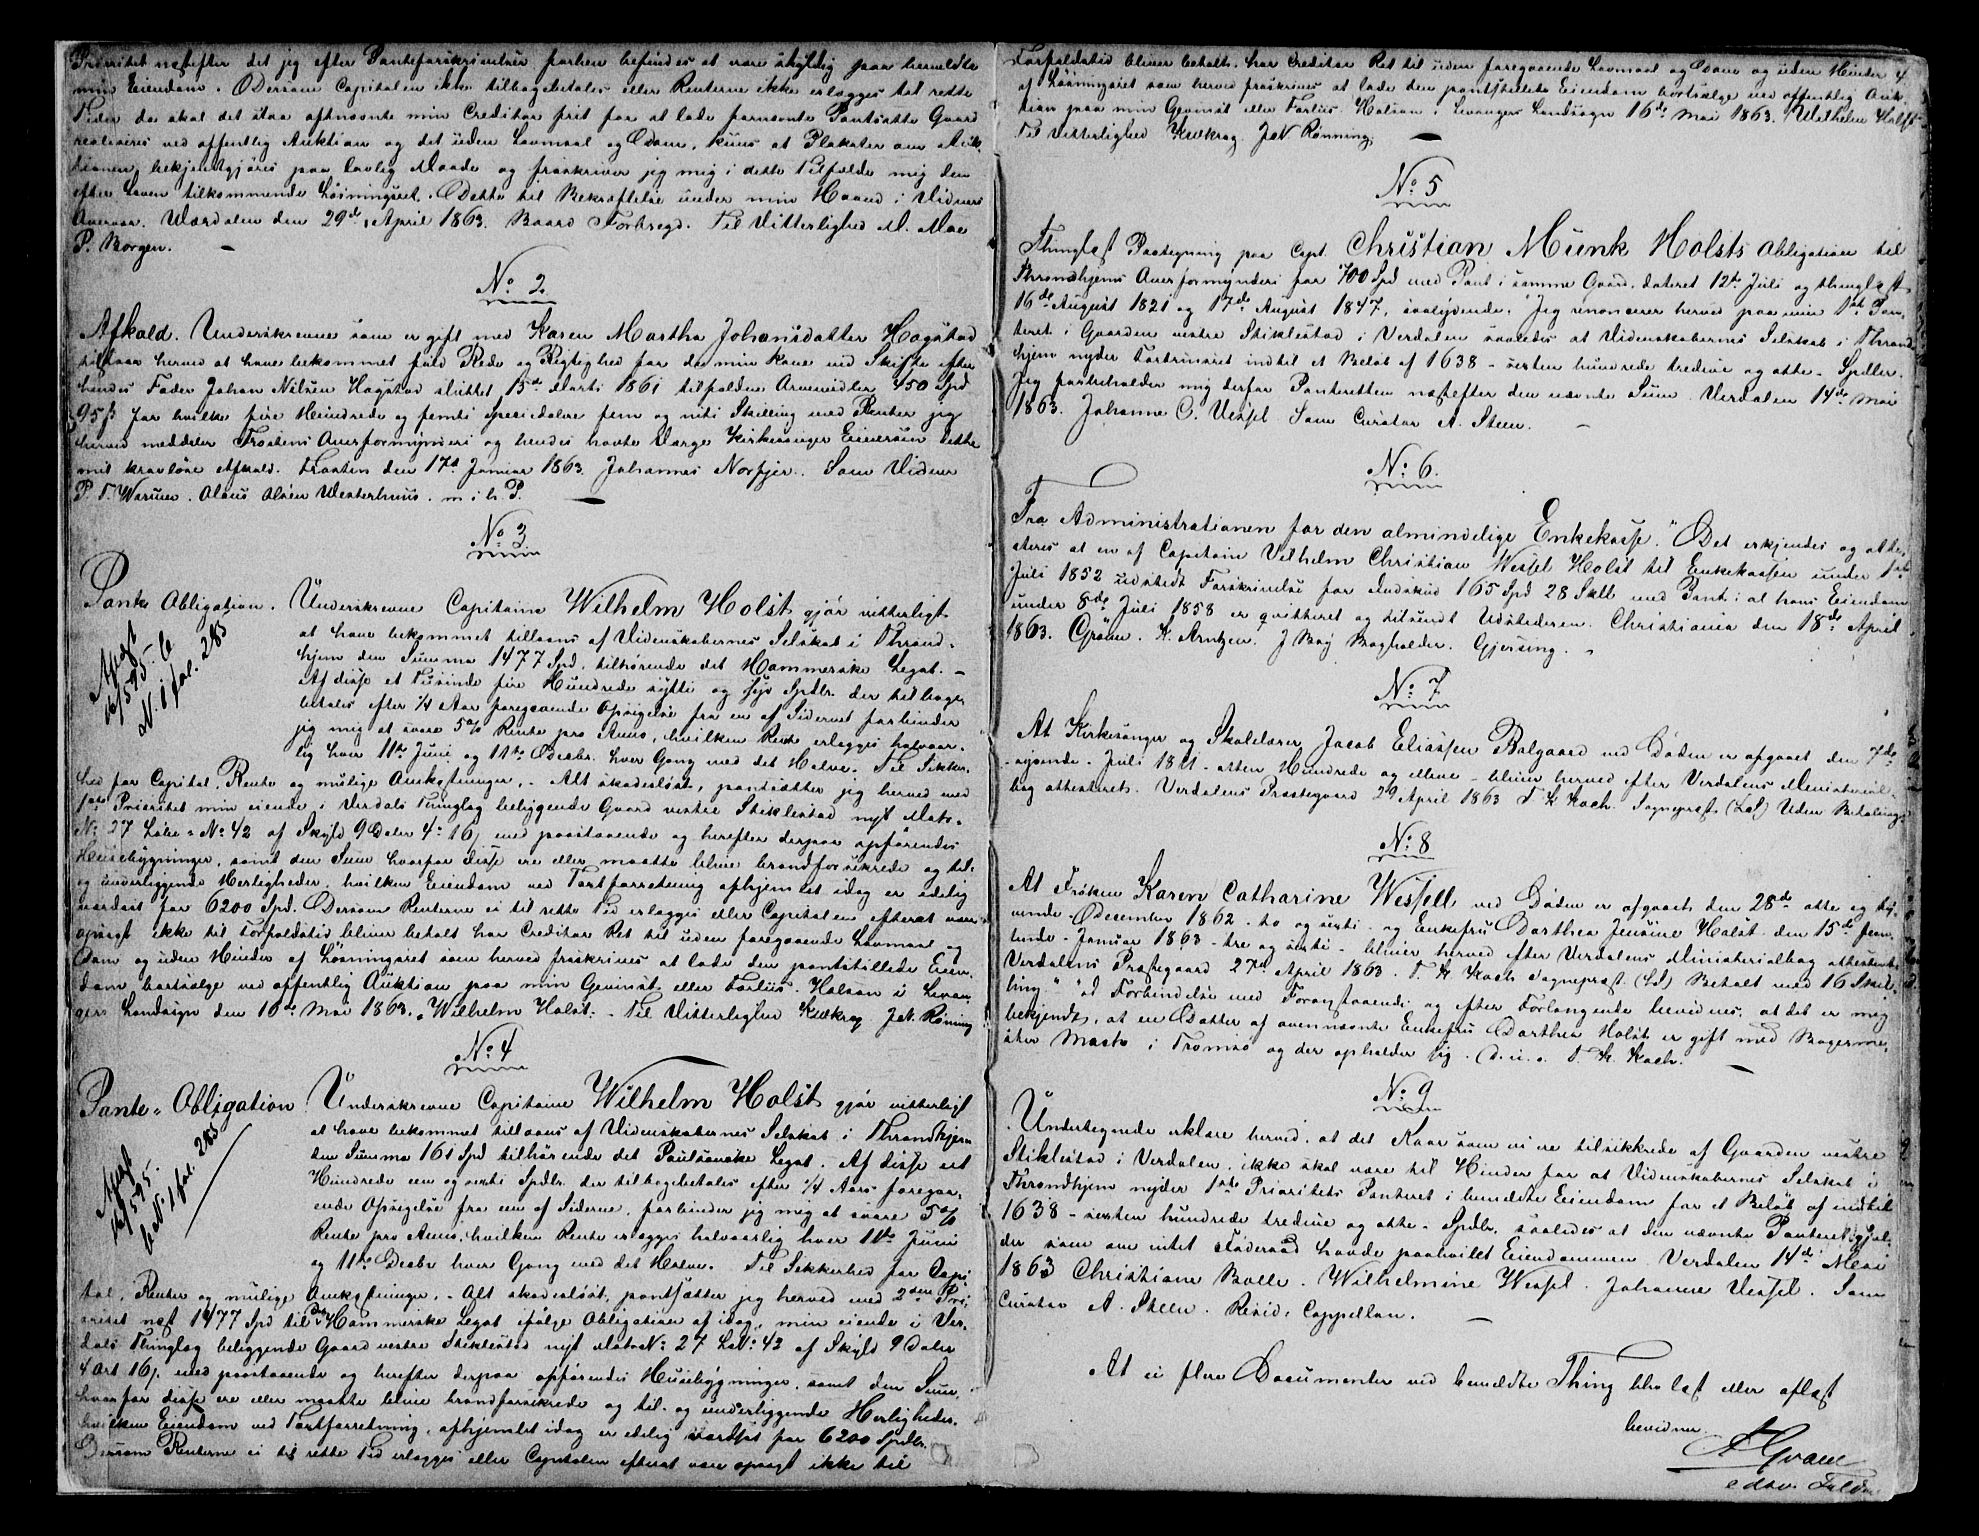 Prioritet næstefter det jeg efter Panteforskrivelser forhen befindes at være skyldig paa bemeldte
min Eiendom. Dersom Capitalen ikke tilbagebetales eller Renterne ikke erlægges til rette
Tider da skal det staa oftnævnte min Creditor frit for at lade fornævnte Pantsatte Gaard
realiseres ved offentlig Auktion og det uden Lovmaal og Dom, kuns at Plakater om Auk-
tionen bekjentgjøres paa lovlig Maade og fraskriver jeg mig i dette Tilfælde mig den
efter Loven tilkommende Løsningsret. Dette til Bekræftelse under min Haand i Vidners
Overvær. Værdalen den 29de April 1863. Baard Forbregd. Til Vitterlighed M. Moe
P. Borgen.
No 2.
Afkald. Underskrevne som er gift med Karen Martha Johansdatter Hogstad
tilstaar herved at have bekommet fuld Rede og Rigtighed for de min Kone ved Skifte efter
hendes Fader Johan Nilsen Hogstad sluttet 15de Marti 1861 tilfaldne Arvemidler 450 Spd
95 ß for hvilke fire Hundrede og femti Speciedalere fem og niti Skilling med Renter jeg
herved meddeler Frostens Overformynderi og hendes havte Værge Kirkesanger Eliassen dette
mit kravløse Afkald. Frosten den 17de Januar 1863. Johannes Norfjer. Som Vidner
P. T. Warmer. Olaus Olsen Westerhuus. m. i. h. P.
No 3
Pante Obligation. Underskrevne Capitaine Wilhelm Holst gjør vitterligt
at have bekommet tillaans af Videnskabernes Selskab i Thrond-
hjem den Summa 1477 Spd. tilhørende det Hammerske Legat. –
Af disse et Tusinde fire Hundrede sytti og syv Spdlr. der tilbage-
betales efter 1/4 Aar foregaaende Opsigelse fra en af Siderne forbinder
jeg mig at svare 5 % Rente pro Anno, hvilken Rente erlægges halvaar-
lig hver 11te Juni og 11te Decbr. hver Gang med det Halve. Til Sikker-
hed for Capital, Rente og mulige Omkostninger, – Alt skadesløst, pantsætter jeg herved med
1ste Prioritet min eiende i Verdals Thinglag beliggende Gaard vestre Stiklestad nyt Matr.
No 27 Løbe No 42 af Skyld 9 Daler 4 – 16, med paastaaende og herefter derpaa opførendes
Huusebygninger, samt den Sum hvorfor disse ere eller maatte blive brandforsikrede og til-
og underliggende Herligheder, hvilken Eiendom ved Taxtforretning afhjemlet idag er edelig
værdsat for 6200 Spd. Dersom Renterne ei til rette Tid erlægges eller Capitalen efterat være
opsagt ikke til Forfaldstid bliver betalt har Creditor Ret til uden foregaaende Lovmaal og
Dom og uden Hinder af Løsningsret som herved fraskrives at lade den pantstillede Eien-
dom bortsælge ved offentlig Auktion paa min Gevinst eller Forliis. Halsan i Levan-
gers Landsogn den 16de Mai 1863. Wilhelm Holst. – Til Vitterlighed Krokrog. Joh. Rønning
Aflæst
16/5 95. Ct
N. 1 fol. 285
No 4
Pante-Obligation Underskrevne Capitaine Wilhelm Holst gjør vitterligt
at have bekommet tillaans af Videnskabernes Selskab i Throndhjem
den Summa 161 Spd tilhørende det Paulsenske Legat. Af disse eet
Hundrede een og sexti Spdlr. der tilbagebetales efter 1/4 Aars foregaa-
ende Opsigelse fra een af Siderne, forbinder jeg mig at svare 5 %
Rente pro Anno, hvilken Rente erlægges halvaarlig hver 11te Juni
og 11te Decbr. hver Gang med det Halve. Til Sikkerhed for Capi-
tal, Renter og mulige Omkostninger. – Alt skadesløst, pantsætter jeg herved med 2den Pri-
oritet næst 1477 Spd til det Hammerske Legat ifølge Obligation af idag, min eiende i Ver-
dals Thinglag beliggende Gaard vestre Stiklestad nyt Matr. No 27 L. No 42 af Skyld 9 Daler
4 Ort 16 ß. med paastaaende og herefter derpaa opførendes Huusebygninger, samt den Sum,
hvorfor disse ere eller maatte blive brandforsikrede og til- og underliggende Herligheder,
hvilken Eiendom ved Taxtforretning, afhjemlet idag er edelig værdsat for 6200 Spdlr.
Dersom Renterne ei til rette Tid erlægges eller Capitalen efterat være opsagt ikke til
Aflæst
16/5 95.
Ct N. 1 fol. 285
Forfaldstid bliver betalt, har Creditor Ret til uden foregaaende Lovmaal og Dom og uden Hinder 4
af Løsningsret som herved fraskrives at lade den pantstillede Eiendom bortsælge ved offentlig Auk-
tion paa min Gevinst eller Forliis. Halsan i Levangers Landsogn 16de Mai 1863. Wilhelm Holst.
Til Vitterlighed Krokrog Joh Rønning.
No 5
Thinglæst Paategning paa Capt. Christian Munk Holsts Obligation til
Throndhjems Overformynderi for 700 Spd med Pant i samme Gaard, dateret 12te Juli og thinglæst
16de August 1821 og 17de August 1847, saalydende: Jeg renoncerer herved paa min 1ste Pan-
teret i Gaarden vestre Stiklestad i Verdalen saaledes at Videnskabernes Selskab i Thrond-
hjem nyder Fortrinsret indtil et Beløb af 1638 – sexten hundrede tredive og otte – Spdlr.
Jeg forbeholder mig derfor Panteretten næstefter den nævnte Sum. Verdalen 14de Mai
1863. Johanne C. Vessel. Som Curator A. Steen.
No 6.
Fra Administrationen for den almindelige Enkekasse. "Det erkjendes og atte-
steres at en af Capitain Vilhelm Christian Wessel Holst til Enkekassen under 1ste
Juli 1852 udstedt Forskrivelse for Indskud 165 Spd 28 Skll med Pant i al hans Eiendom
under 8de Juli 1858 er qvitteret og tilsendt Udstederen. Christiania den 18de April
1863. Grønn. K. Arntzen. J Boy Bogholder. Gjersing.
No 7
At Kirkesanger og Skolelærer Jacob Eliassen Balgaard ved Døden er afgaaet den 7de
– syvende – Juli 1811 – atten Hundrede og elleve – bliver herved efter Verdalens Ministerial-
bog attesteret. Verdalens Præstegaard 29 April 1863 F. K. Koch. Sognepræst. (L.S.) Uden Betaling.
No 8
At Frøken Karen Catharine Wessell ved Døden er afgaaet den 28de otte og ty-
vende – December 1862 – to og sexti – og Enkefru Dorthea Jensine Holst den 15de fem-
tende – Januar 1863 – tre og sexti – bliver herved efter Verdalens Ministerialbog attesteret.
Verdalens Præstegaard 27de April 1863. F. K. Koch Sognepræst. (L.S.) Betalt med 16 Skil-
ling." "I Forbindelse med Foranstaaende og efter Forlangende bevidnes, at det er mig
bekjendt, at en Datter af ovennævnte Enkefru Dorthea Holst er gift med Bagerme-
ster Mack i Tromsø og der opholder sig. d. u. s. F. K. Koch.
No 9
Undertegnede erklære herved, at det Kaar som vi ere tilsikkrede af Gaarden vestre
Stiklestad i Verdalen, ikke skal være til Hinder for at Videnskabernes Selskab i
Throndhjem nyder 1ste Prioritets Panteret i bemeldte Eiendom for et Beløb af indtil
1638 – sexten hundrede tredive og otte – Spdlr. saaledes at den nævnte Panteret gjæl-
der som om intet Føderaad havde paahvilet Eiendommen. Verdalen 14de Mai
1863 Christiane Bolle. Wilhelmine Wessel. Johanne Vessel. Som
Curator A. Steen. Resid: Cappellan.
At ei flere Documenter ved bemeldte Thing blev læst eller aflæst
bevidner